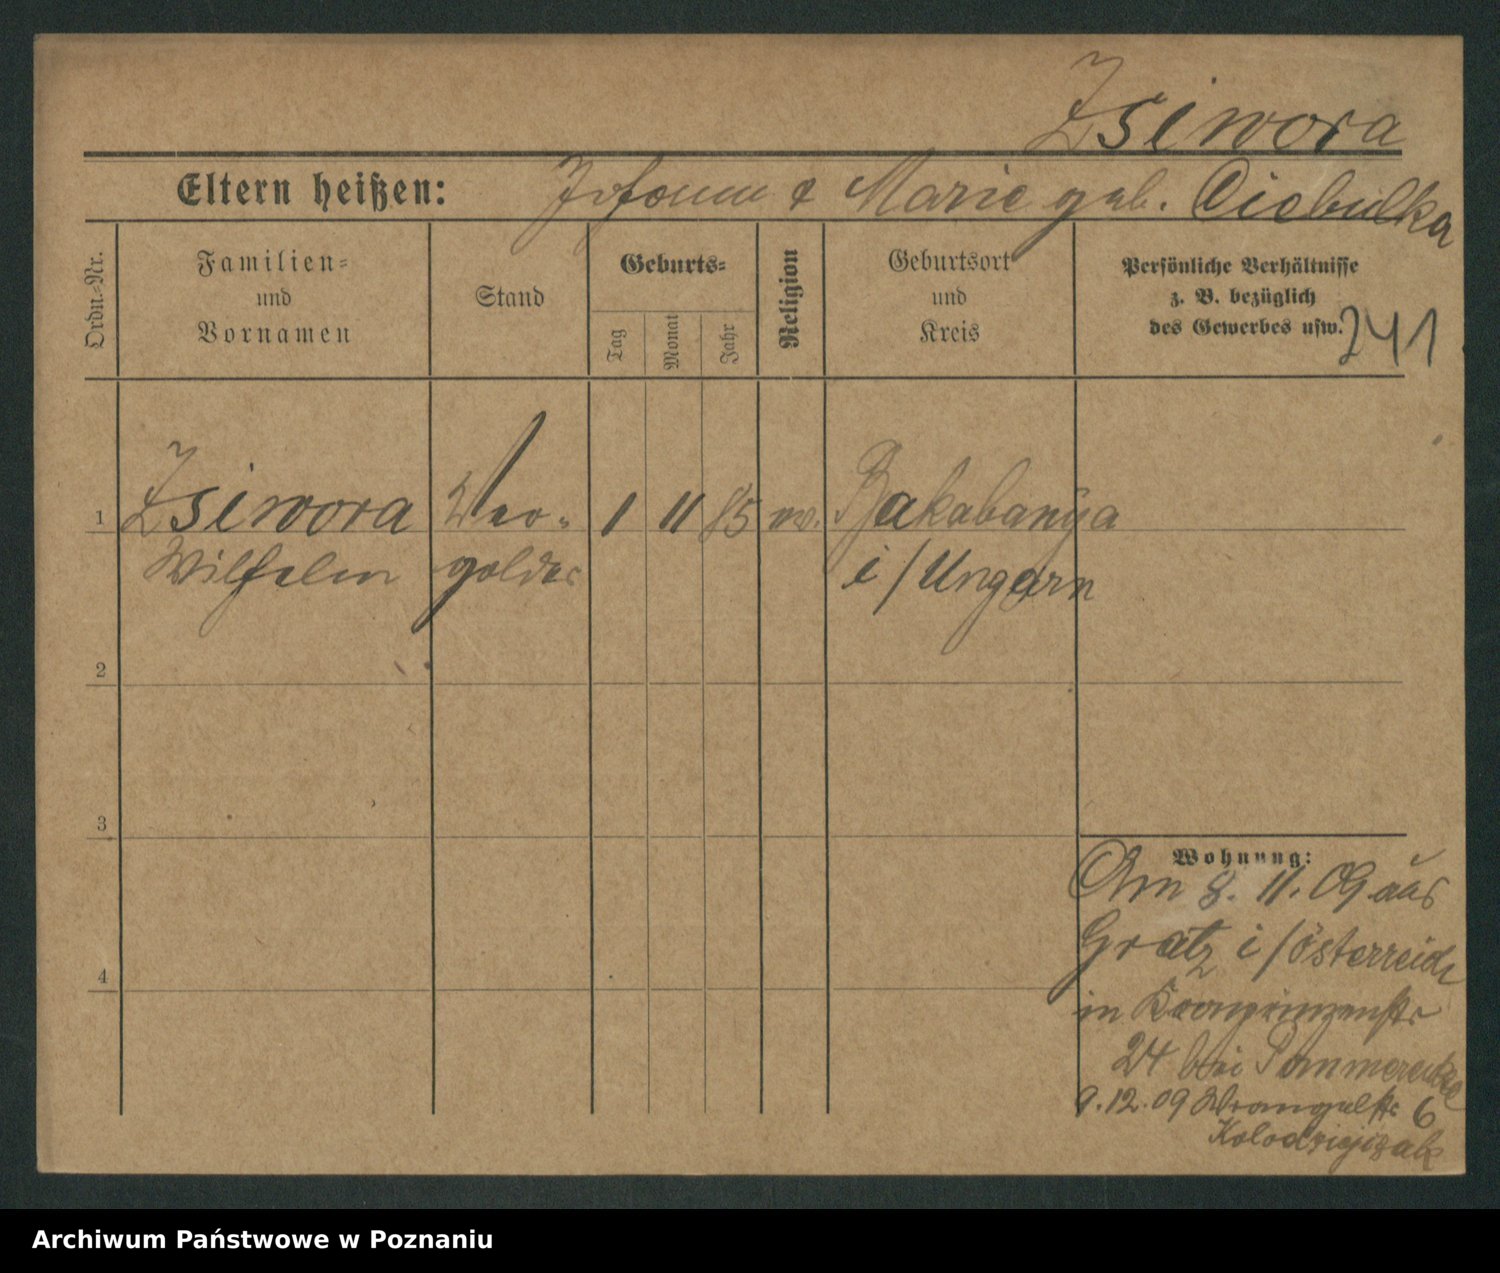 Zsiwora
Eltern heißen: Johann & Marie geb. Ciebulka
Ordn.-Nr.
Familien-
und
Vornamen
Stand
Geburts-
Tag
Monat
Jahr
Religion
Geburtsort
und
Kreis
Persönliche Verhältnisse
z. B. bezüglich
des Gewerbes usw.
241
1 Zsiwora Ver- 1 11 85 ev. Bakabanya
Wilhelm golder i/Ungarn
2
3
4
Wohnung:
Am 8. 11. 09 aus
Gratz i/Österreich
in Kronprinzenstr
24 bei Pommerenke
9.12.09 Wrangelstr 6